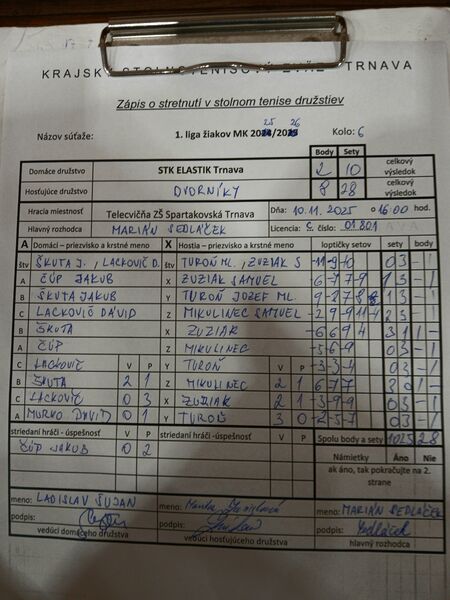 KRAJSKÝ STOLNOTENISOVÝ ZVÄZ TRNAVA
Zápis o stretnutí v stolnom tenise družstiev
Názov súťaže: 1. liga žiakov MK 25/26 Kolo: 6
Body Sety
Domáce družstvo STK ELASTIK Trnava 2 10 celkový výsledok
Hosťujúce družstvo DVORNÍKY 8 28 celkový výsledok
Hracia miestnosť Telecvičňa ZŠ Spartakovská Trnava Dňa: 10.11.2025 o 16:00 hod.
Hlavný rozhodca MARIÁN SEDLÁČEK Licencia: C číslo: 01801
A Domáci - priezvisko a krstné meno X Hostia - priezvisko a krstné meno loptičky setov sety body
štv ŠKUTA J., LACKOVIČ D. štv TUROŇ ML., ZUZIAK S -11-9-0 03 -1
A ČÚP JAKUB X ZUZIAK SAMUEL 13 -1
B ŠKUTA JAKUB Y TUROŇ JOZEF ML. 13 -1
C LACKOVIČ DÁVID Z MIKULINEC SAMUEL 23 -1
B ŠKUTA X ZUZIAK -6694 31 1-
A ČÚP Z MIKULINEC -5-6-9 03 -1
C LACKOVIČ V P Y TUROŇ V P -3-3-4 03 -1
B ŠKUTA 2 1 Z MIKULINEC 2 1 677 30 1-
C LACKOVIČ 0 3 X ZUZIAK 2 1 -3-9-9 03 -1
A MURKO DAVID 0 1 Y TUROŇ 3 0 -2-5-7 03 -1
striedaní hráči - úspešnosť V P striedaní hráči - úspešnosť V P Spolu body a sety 10 28 2 8
ČÚP JAKUB 0 2 Námietky Áno Nie
ak áno, tak pokračujte na 2. strane
meno: LADISLAV ŠUJAN meno: meno: MARIÁN SEDLÁČEK
podpis: podpis: podpis: Sedláček
vedúci domáceho družstva vedúci hosťujúceho družstva hlavný rozhodca